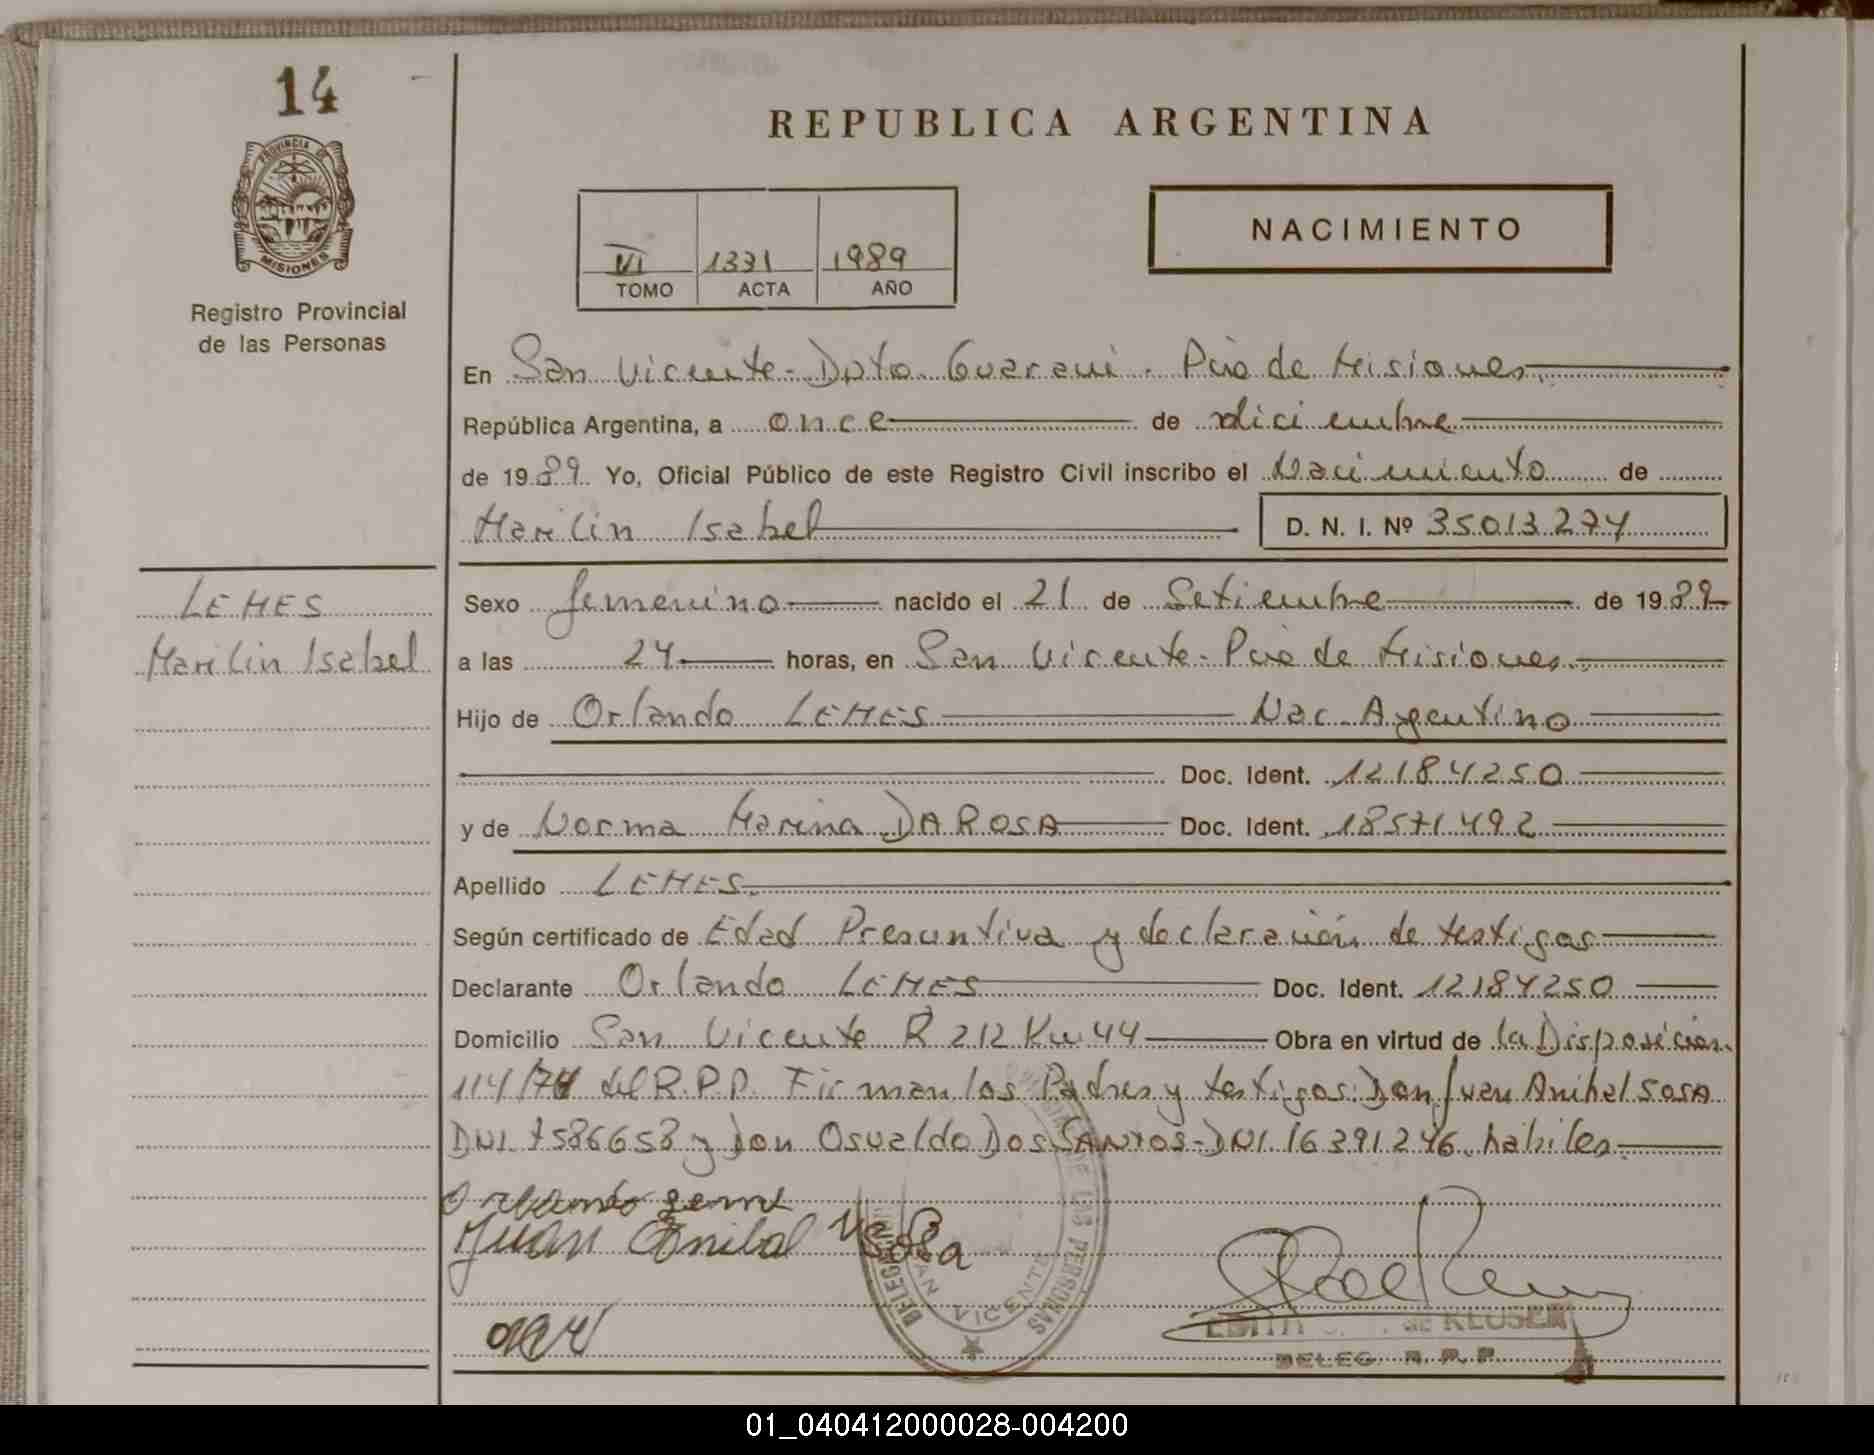 14
PROVINCIA DE
MISIONES
Registro Provincial
de las Personas
REPUBLICA ARGENTINA
VI 1331 1989
TOMO ACTA AÑO
NACIMIENTO
En San Vicente - Dpto Guarani. Pcia de Misiones
República Argentina, a once de diciembre
de 1989. Yo, Oficial Público de este Registro Civil inscribo el Nacimiento de
Marilin Isabel D. N. I. Nº 35.013.274
LEMES
Marilin Isabel
Sexo femenino nacido el 21 de Setiembre de 1989
a las 24 horas, en San Vicente - Pcia de Misiones
Hijo de Orlando LEMES Nac. Argentino
Doc. Ident. 12184250
y de Norma Marina DA ROSA Doc. Ident. 18571492
Apellido LEMES.
Según certificado de Edad Presuntiva y declaración de testigos
Declarante Orlando LEMES Doc. Ident. 12184250
Domicilio San Vicente R 212 Km 44 Obra en virtud de la Disposición
114/74 del R.P.P. Firman los Padres y testigos: Don Juan Anibal SOSA
DNI 7586658 y Don Osvaldo DOS SANTOS - DNI. 16391246. habiles
Juan Anibal Sosa
DE LAS PERSONAS
SAN VICENTE
EDITH de KLUSER
DELEG. R. P. P.
01_040412000028-004200